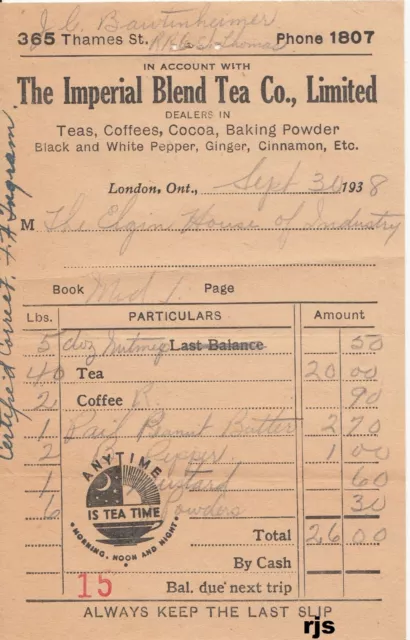 J. C. Bawtinheimer
R.R.6 St. Thomas
365 Thames St. Phone 1807
IN ACCOUNT WITH
The Imperial Blend Tea Co., Limited
DEALERS IN
Teas, Coffees, Cocoa, Baking Powder
Black and White Pepper, Ginger, Cinnamon, Etc.
London, Ont., Sept 30 1938
M The Elgin House of Industry
Book Page
Lbs. PARTICULARS Amount
5 doz Nutmeg Last Balance 50
40 Tea 20 00
2 Coffee R. 90
1 Pail Peanut Butter 2 70
2 Pepper 1 00
1 Mustard 60
6 Powders 30
Total 26 00
By Cash
Bal. due next trip
ANYTIME
IS TEA TIME
MORNING, NOON AND NIGHT
15
ALWAYS KEEP THE LAST SLIP
Certified Correct. Ingram.
rjs